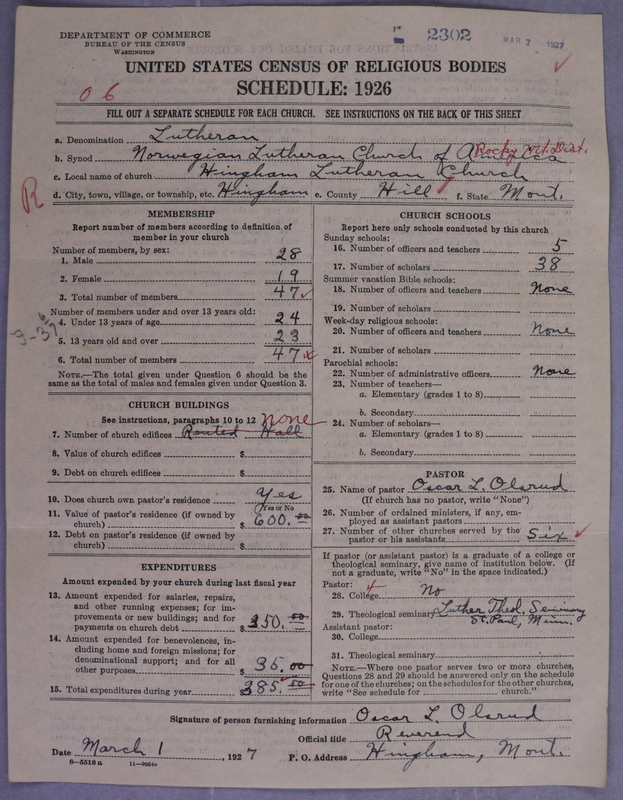 DEPARTMENT OF COMMERCE
BUREAU OF THE CENSUS
WASHINGTON
2302
MAR 7 1927
UNITED STATES CENSUS OF RELIGIOUS BODIES
SCHEDULE: 1926
06
FILL OUT A SEPARATE SCHEDULE FOR EACH CHURCH. SEE INSTRUCTIONS ON THE BACK OF THIS SHEET
a. Denomination Lutheran
b. Synod Norwegian Lutheran Church of America Rocky Mt. Dist.
c. Local name of church Hingham Lutheran Church
R
d. City, town, village, or township, etc. Hingham e. County Hill f. State Mont.
MEMBERSHIP
Report number of members according to definition of
member in your church
Number of members, by sex:
1. Male 28
2. Female 19
3. Total number of members 47
Number of members under and over 13 years old:
4. Under 13 years of age 24
5. 13 years old and over 23
6. Total number of members 47
NOTE.—The total given under Question 6 should be the
same as the total of males and females given under Question 3.
CHURCH BUILDINGS
See instructions, paragraphs 10 to 12 none
7. Number of church edifices Rented Hall
8. Value of church edifices $
9. Debt on church edifices $
10. Does church own pastor's residence Yes
(Yes or No)
11. Value of pastor's residence (if owned by
church) $ 600.00
12. Debt on pastor's residence (if owned by
church) $
EXPENDITURES
Amount expended by your church during last fiscal year
13. Amount expended for salaries, repairs,
and other running expenses; for im-
provements or new buildings; and for
payments on church debt $ 350.00
14. Amount expended for benevolences, in-
cluding home and foreign missions; for
denominational support; and for all
other purposes $ 35.00
15. Total expenditures during year $ 385.00
CHURCH SCHOOLS
Report here only schools conducted by this church
Sunday schools:
16. Number of officers and teachers 5
17. Number of scholars 38
Summer vacation Bible schools:
18. Number of officers and teachers None
19. Number of scholars
Week-day religious schools:
20. Number of officers and teachers None
21. Number of scholars
Parochial schools:
22. Number of administrative officers None
23. Number of teachers—
a. Elementary (grades 1 to 8)
b. Secondary
24. Number of scholars—
a. Elementary (grades 1 to 8)
b. Secondary
PASTOR
25. Name of pastor Oscar L. Olsrud
(If church has no pastor, write "None")
26. Number of ordained ministers, if any, em-
ployed as assistant pastors
27. Number of other churches served by the
pastor or his assistants Six
If pastor (or assistant pastor) is a graduate of a college or
theological seminary, give name of institution below. (If
not a graduate, write "No" in the space indicated.)
Pastor:
28. College No
29. Theological seminary Luther Theol. Seminary
St. Paul, Minn.
Assistant pastor:
30. College
31. Theological seminary
NOTE.—Where one pastor serves two or more churches,
Questions 28 and 29 should be answered only on the schedule
for one of the churches; on the schedules for the other churches,
write "See schedule for ........ church."
Signature of person furnishing information Oscar L. Olsrud
Official title Reverend
Date March 1, 1927 P. O. Address Hingham, Mont.
8—5518a 11—9084